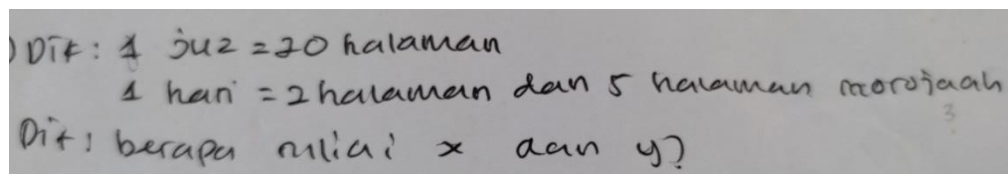 ) Dit : 1 juz = 20 halaman
1 hari = 2 halaman dan 5 halaman morojaah
Dit : berapa nilai x dan y?